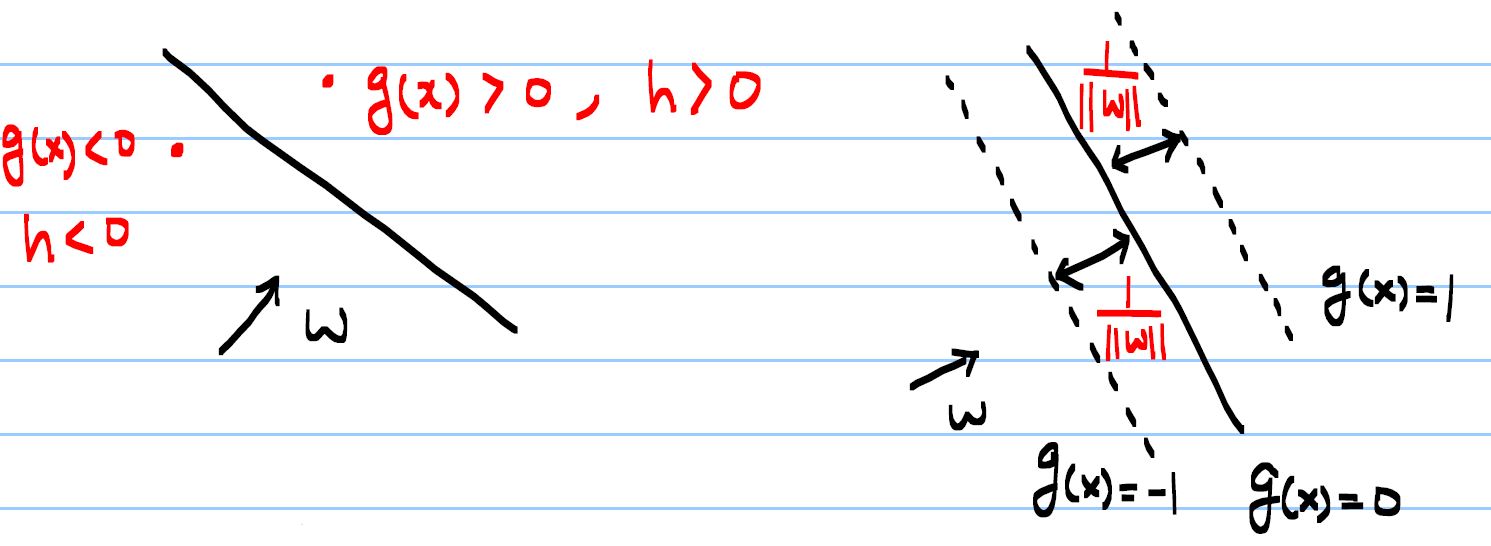 g(x) > 0 , h > 0
g(x) < 0
h < 0
w
1
‖w‖
1
‖w‖
w
g(x) = 1
g(x) = -1
g(x) = 0